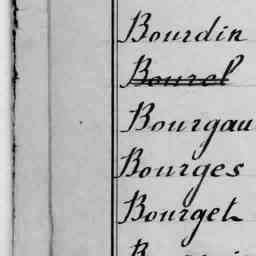 Bourdin
Bourel
Bourgau
Bourges
Bourget